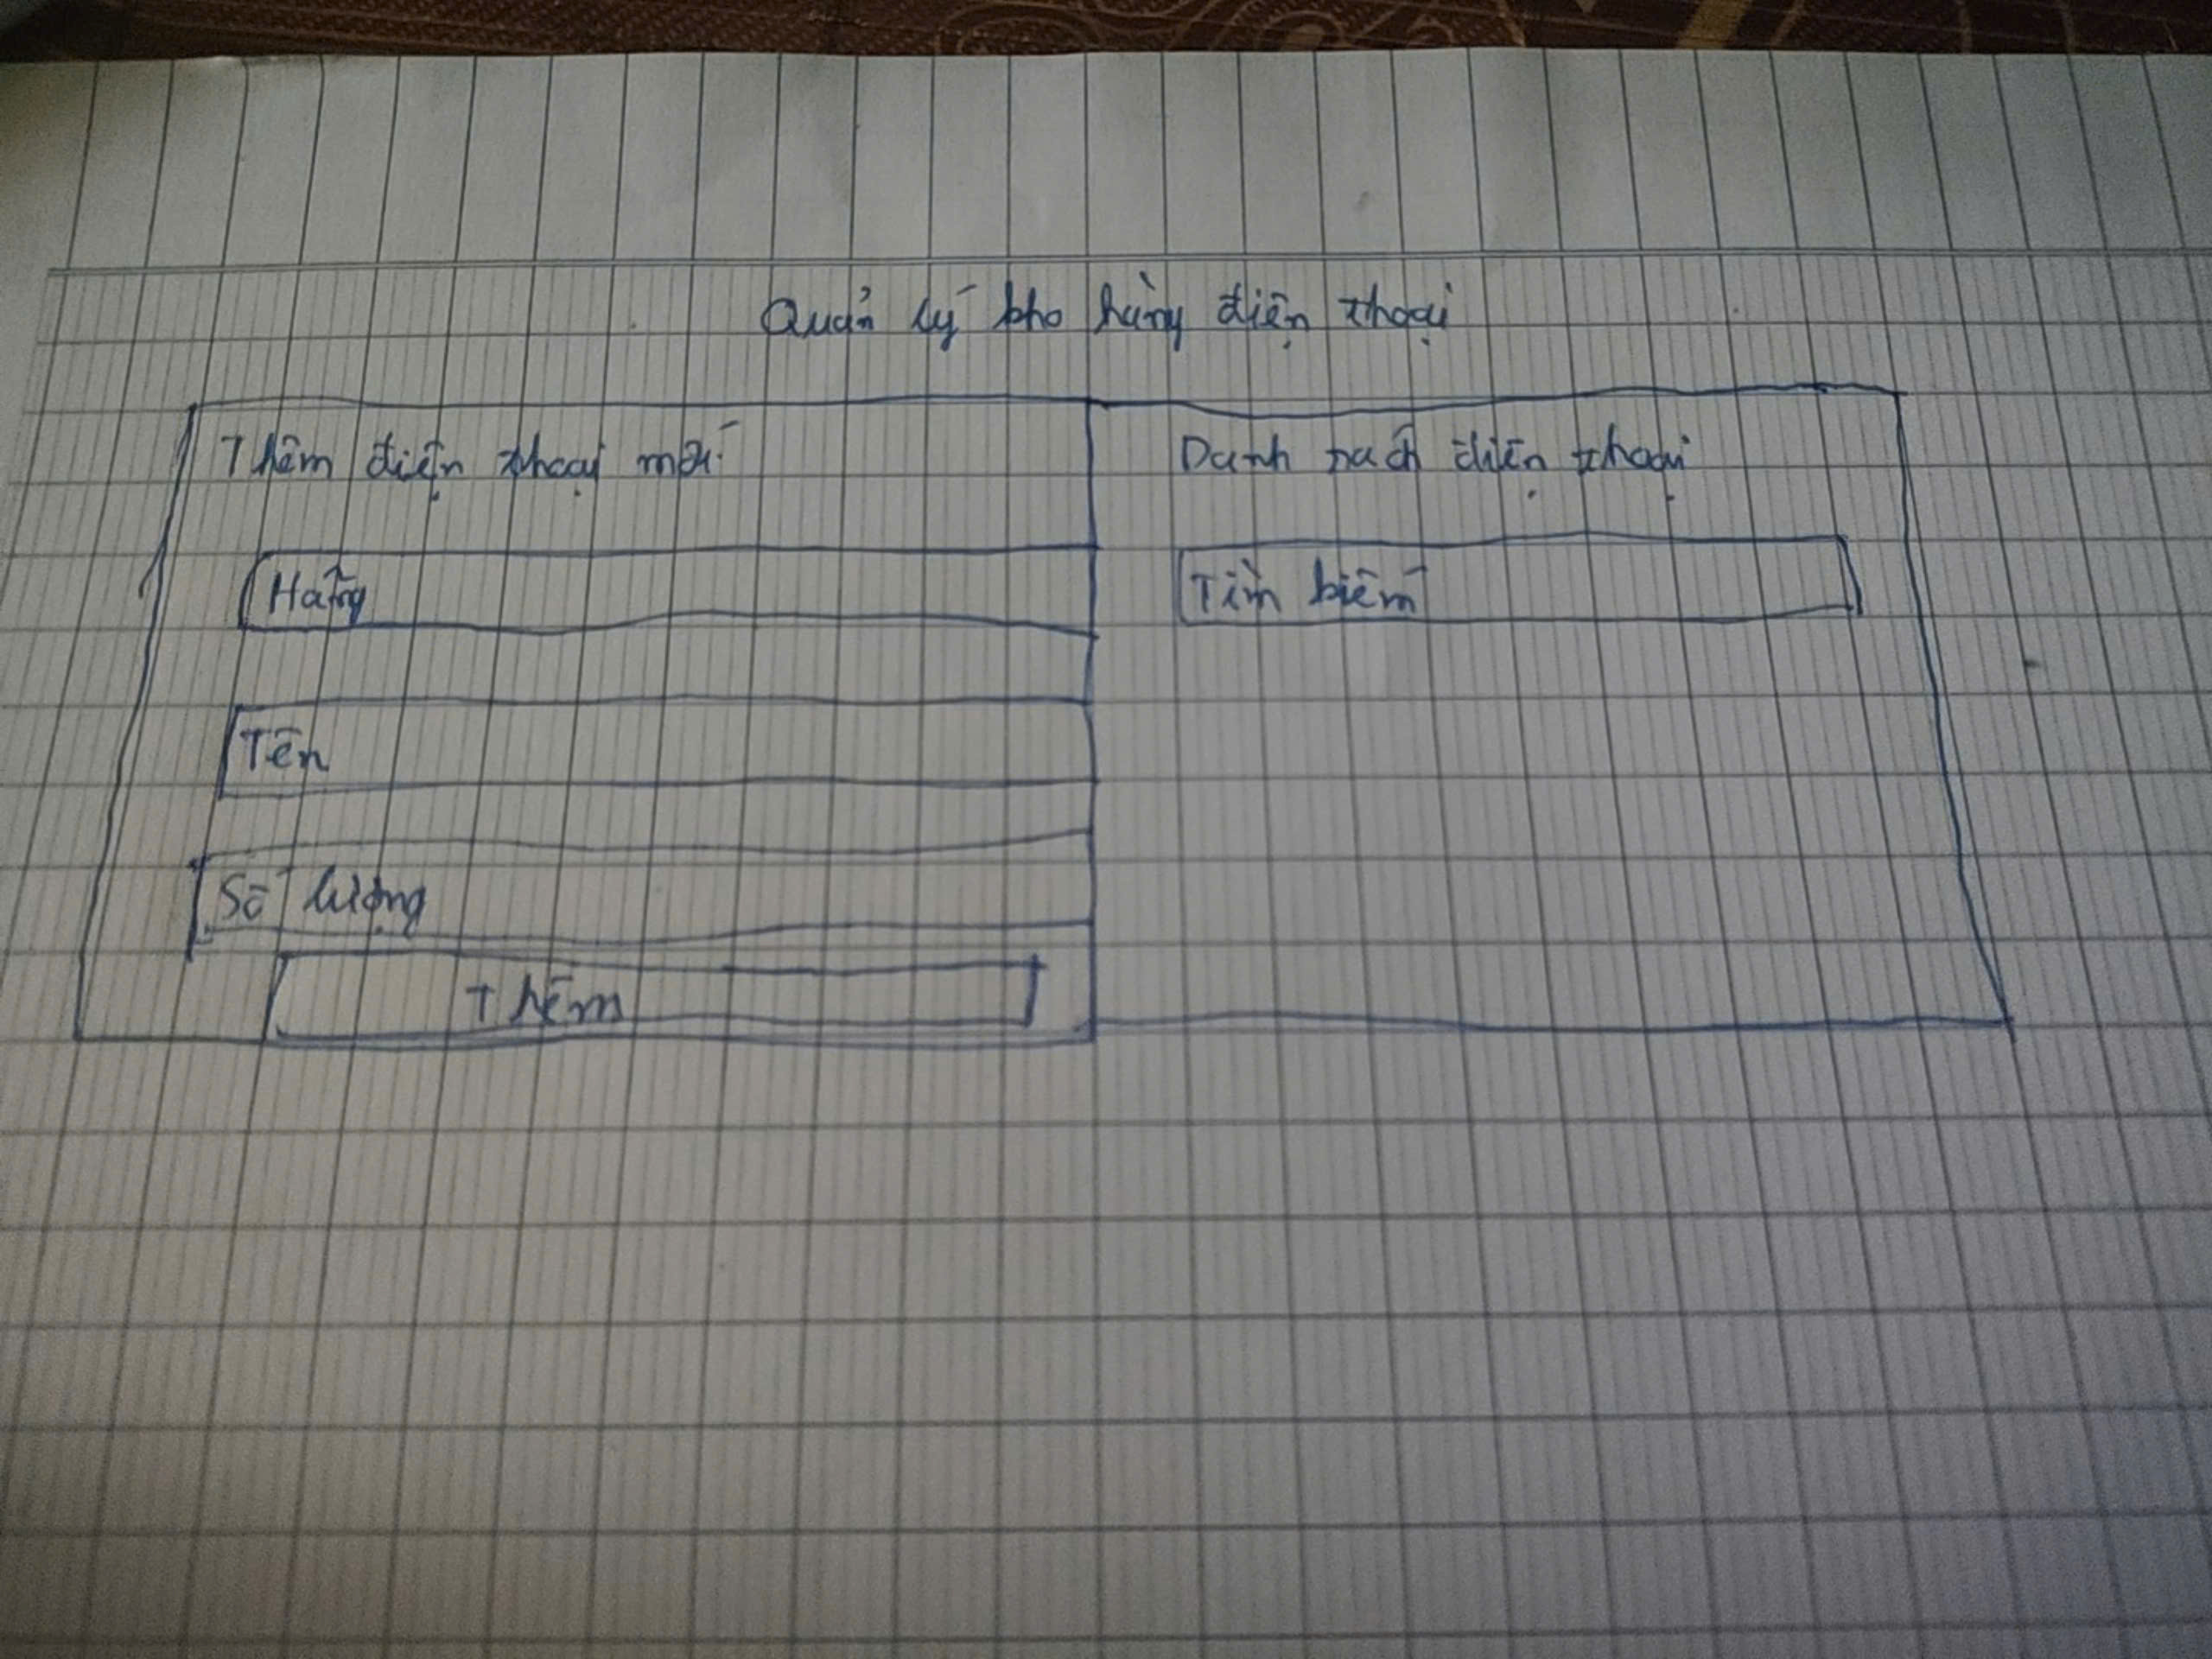 Quản lý kho hàng điện thoại
Thêm điện thoại mới
Hãng
Tên
Số lượng
Thêm
Danh sách điện thoại
Tìm kiếm